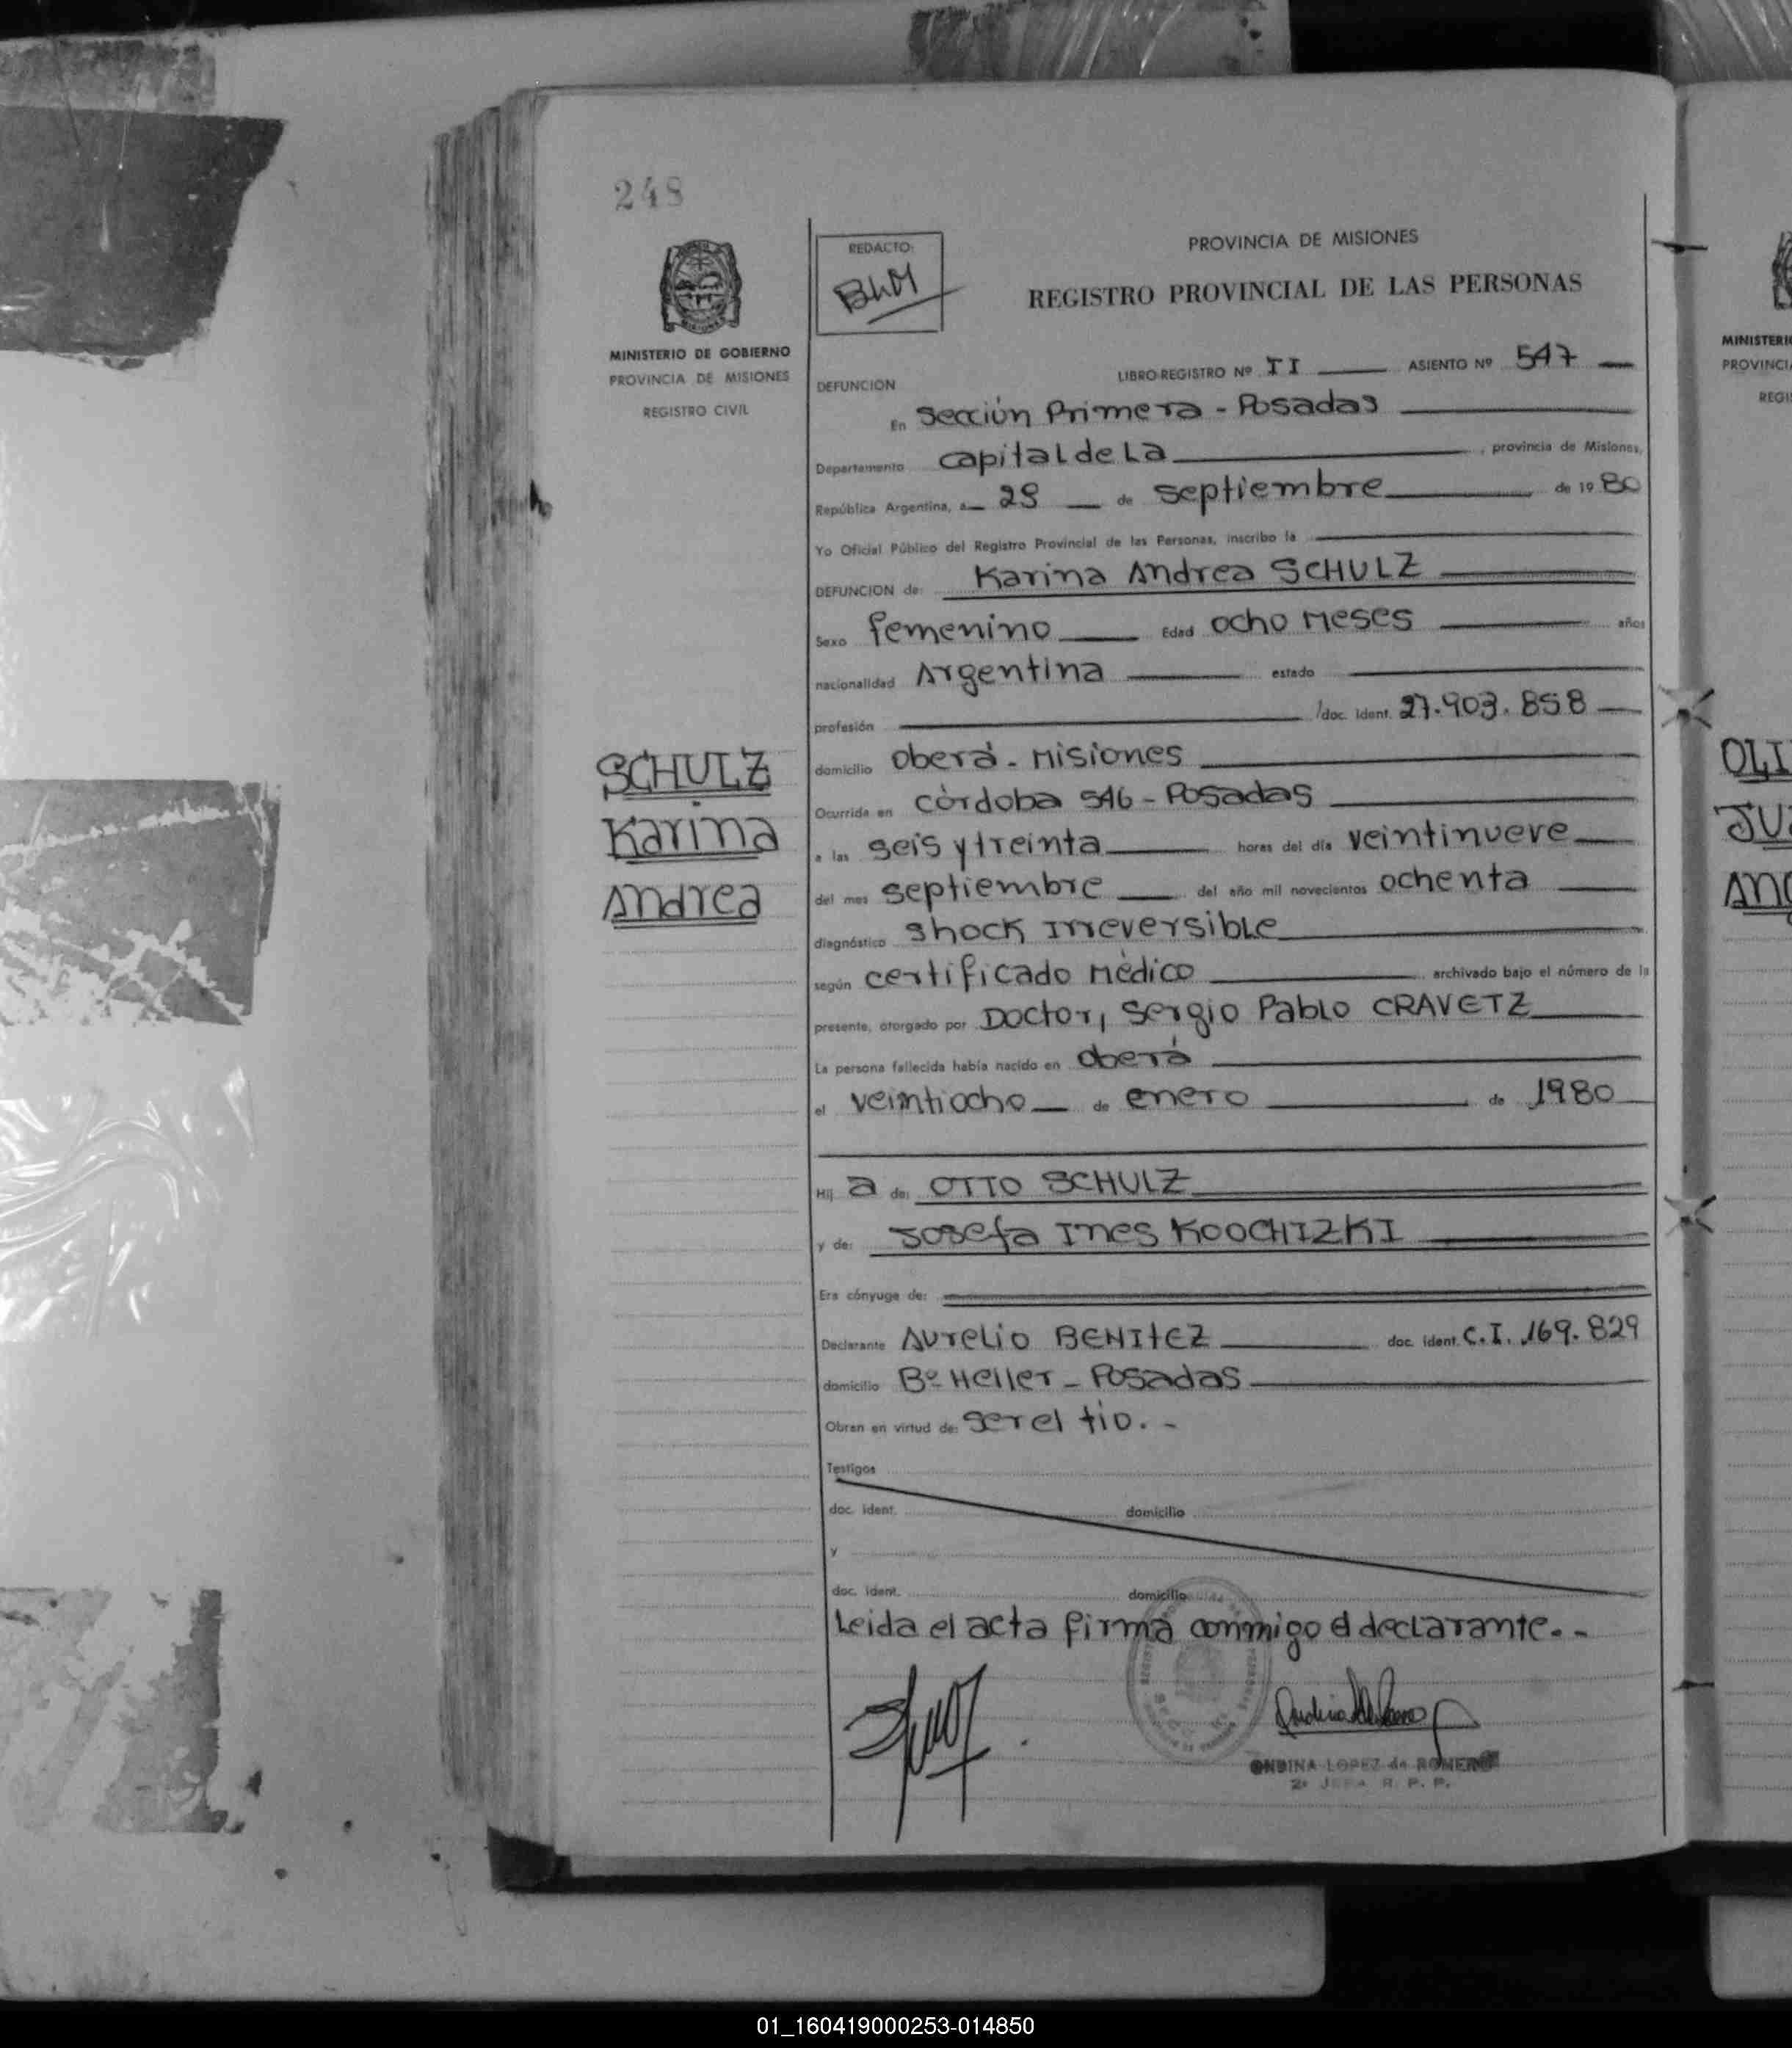 248
REDACTO:
BHM
PROVINCIA DE MISIONES
REGISTRO PROVINCIAL DE LAS PERSONAS
MINISTERIO DE GOBIERNO
PROVINCIA DE MISIONES
REGISTRO CIVIL
DEFUNCION
LIBRO-REGISTRO Nº II ASIENTO Nº 547
En Sección Primera - Posadas
Departamento capital de La, provincia de Misiones,
República Argentina, a 29 de septiembre de 1980
Yo Oficial Público del Registro Provincial de las Personas, inscribo la
DEFUNCION de: Karina Andrea SCHULZ
Sexo femenino Edad ocho Meses años
nacionalidad Argentina estado
profesión doc. ident. 27.903.858
SCHULZ
Karina
Andrea
domicilio oberá - Misiones
Ocurrida en córdoba 546 - Posadas
a las seis y treinta horas del día veintinueve
del mes septiembre del año mil novecientos ochenta
diagnóstico Shock Irreversible
según certificado Médico archivado bajo el número de la
presente, otorgado por Doctor, Sergio Pablo CRAVETZ
La persona fallecida había nacido en oberá
el veintiocho de enero de 1980
Hij a de: OTTO SCHULZ
y de: Josefa Ines KOOCHIZKI
Era cónyuge de:
Declarante Aurelio BENITEZ doc. ident. C.I. 169.829
domicilio Bº Heller - Posadas
Obran en virtud de: ser el tio. -
Testigos
doc. ident. domicilio
y
doc. ident. domicilio
Leida el acta firma conmigo el declarante. -
ONDINA LOPEZ de ROMERO
2º JEFA R. P. P.
MINISTERI
PROVINCI
REGIS
OLI
JU
AN
01_160419000253-014850